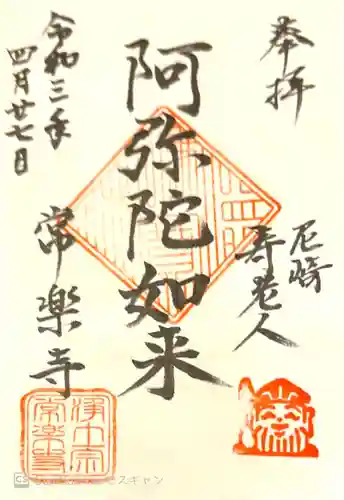 奉拝
尼崎
寿老人
阿弥陀如来
令和三年
四月廿七日
常樂寺
浄土宗
常楽寺
CS
スキャン